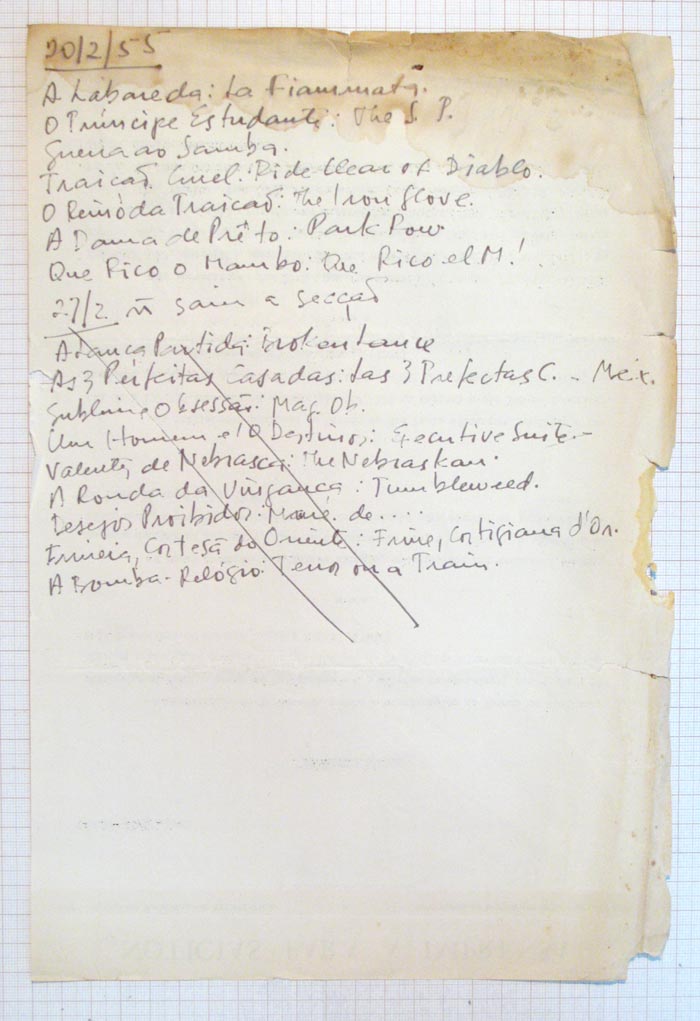 20/2/55
A Labareda: La Fiammata.
O Príncipe Estudante: The S. P.
Guerra ao Samba.
Traição Cruel: Ride Clear of Diablo.
O Reino da Traição: The Iron Glove.
A Dama de Prêto: Park Row
Que Rico o Mambo: Que Rico el M!
27/2 ñ saiu a secção
A Lança Partida: Broken Lance
As 3 Perfeitas Casadas: Las 3 Prefectas C. - Méx.
Sublime Obsessão: Mag. Ob.
Um Homem e 10 Destinos: Executive Suite.-
Valente de Nebrasca: The Nebraskan.
A Ronda da Vingança: Tumbleweed.
Desejos Proibidos: Mme. de....
Frineia, Cortesã do Oriente: Frine, Cortigiana d'Or.
A Bomba-Relógio: Terror on a Train.